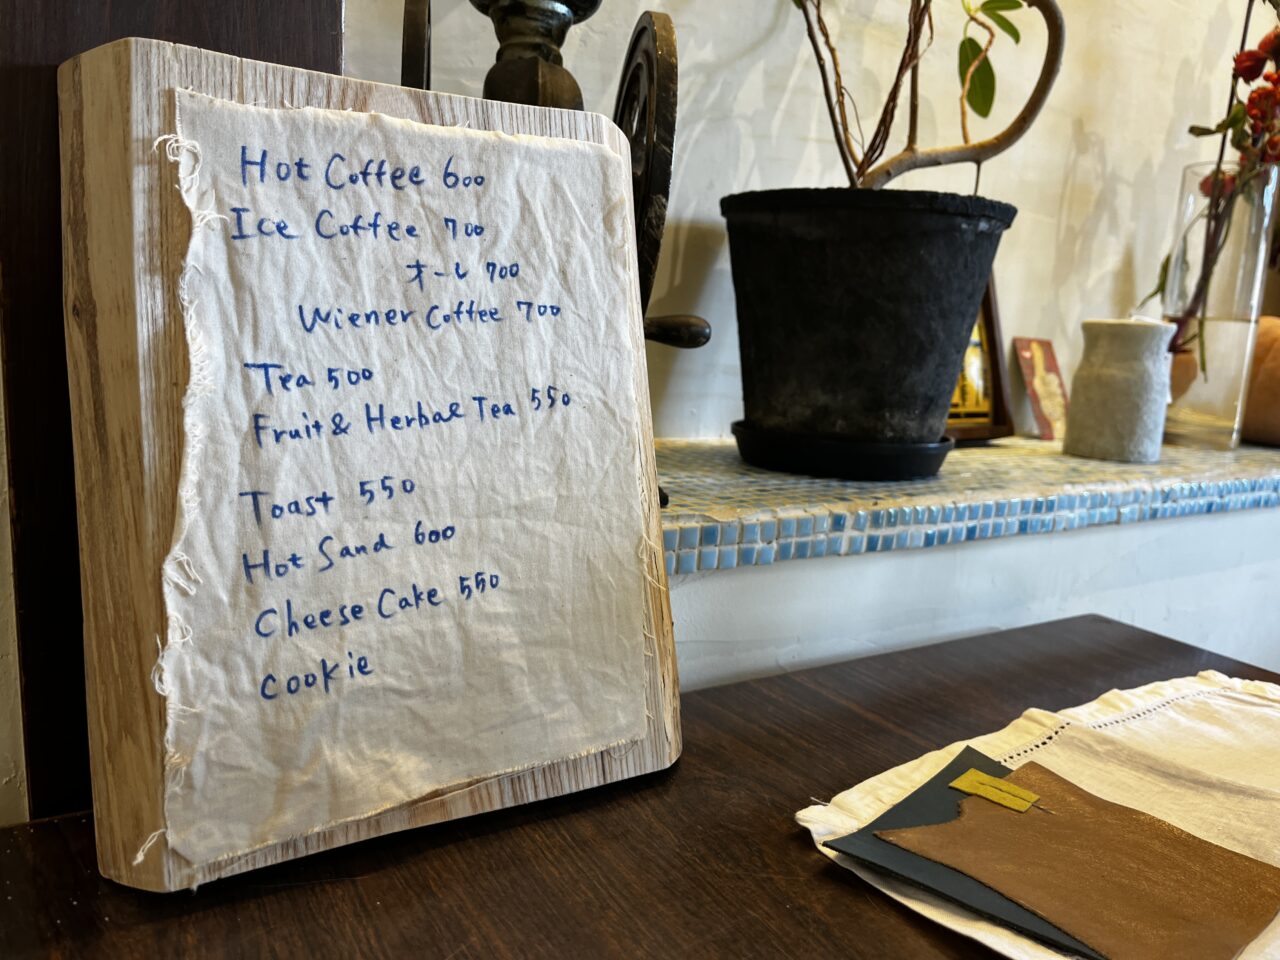 Hot Coffee 600
Ice Coffee 700
オーレ 700
Wiener Coffee 700
Tea 500
Fruit & Herbal Tea 550
Toast 550
Hot Sand 600
Cheese Cake 550
cookie